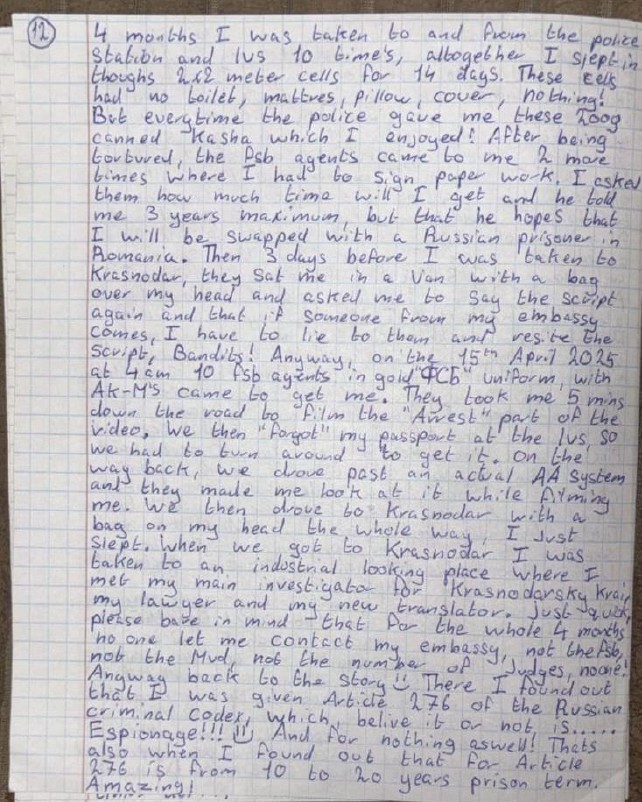 12
4 months I was taken to and from the police
Station and IVS 10 time's, altogether I slept in
thoughs 2x2 meter cells for 14 days. These cells
had no toilet, mattres, pillow, cover, nothing!
But everytime the police gave me these 200g
canned Kasha which I enjoyed! After being
tortured, the fsb agents came to me 2 more
times where I had to sign paper work. I asked
them how much time will I get and he told
me 3 years maximum, but that he hopes that
I will be swapped with a Russian prisoner in
Romania. Then 3 days before I was taken to
Krasnodar, they sat me in a van with a bag
over my head and asked me to say the script
again and that if someone from my embassy
comes, I have to lie to them and resite the
script, Bandits! Anyway, on the 15th April 2025
at 4am 10 fsb agents in gold "ФСБ" uniform, with
AK-M's came to get me. They took me 5 mins
down the road to film the "Arrest" part of the
video. We then "forgot" my passport at the IVS, so
we had to turn around to get it. On the
way back, we drove past an actual AA System
and they made me look at it while filming
me. We then drove to Krasnodar with a
bag on my head the whole way, I Just
slept. When we got to Krasnodar I was
taken to an industrial looking place where I
met my main investigator for Krasnodarsky Krai,
my lawyer and my new translator. Just quick,
please bare in mind that for the whole 4 months
no one let me contact my embassy, not the fsb,
not the Mvd, not the number of Judges, noone!
Anyway back to the story There I found out
that I was given Article 276 of the Russian
criminal codex, which, belive it or not is.....
Espionage!!! And for nothing aswell! Thats
also when I found out that for Article
276 is from 10 to 20 years prison term.
Amazing!